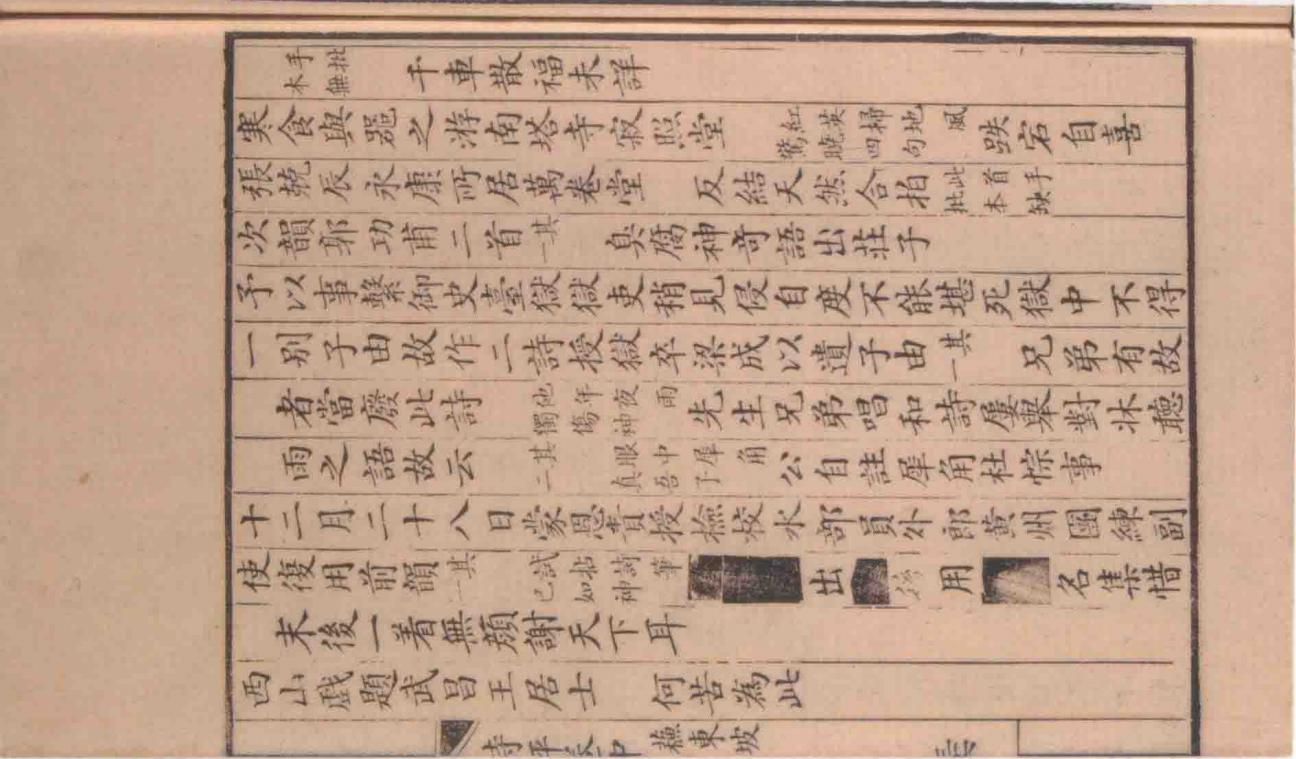 手批本無 千車散福未詳
寒食與器之游南塔寺寂照堂 紅英掃地風驚曉四句 跌宕自喜
張兢辰永康所居萬卷堂 反結天然合拍 此首手批本缺
次韻郭功甫二首其一 臭腐神奇語出莊子
予以事繫御史臺獄獄吏稍見侵自度不能堪死獄中不得
一別子由故作二詩授獄卒梁成以遺子由其一 兄弟有故
者當廢此詩 他年夜雨獨傷神 先生兄弟唱和詩屢舉對牀聽
雨之語故云 其二 眼中犀角真吾子 公自註犀角杜悰事
十二月二十八日蒙恩責授檢校水部員外郎黃州團練副
使復用前韻其一 試拈詩筆已如神 出 用 名集惜
末後一着無顏謝天下耳
西山戲題武昌王居士 何苦為此
蘇東坡